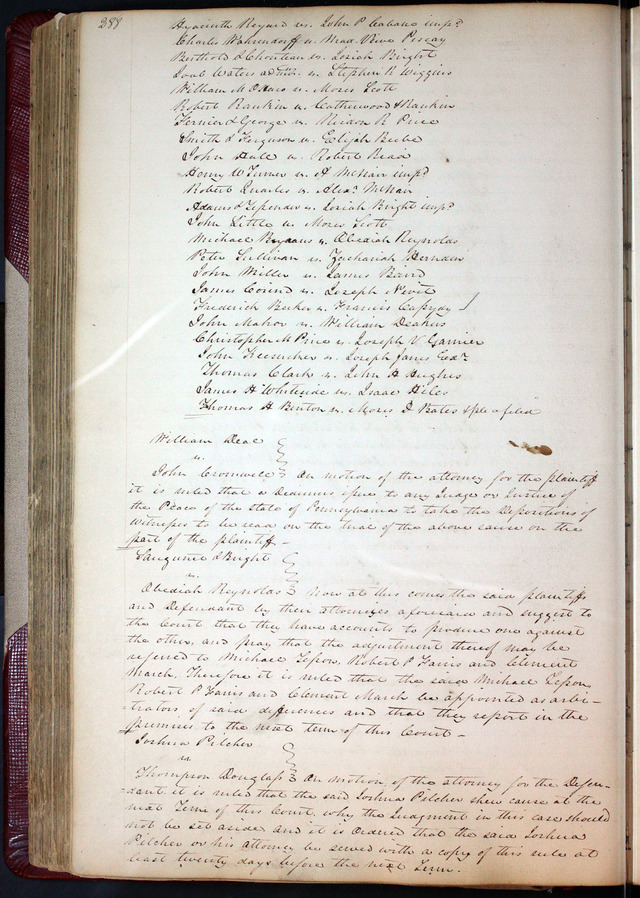 288
Hyacinth Renard vs. John P Cabanne imp.d
Charles Wahrendorff v. Mad. Vive Pescay
Berthold & Chouteau vs. Josiah Bright
Joab Waters adm. v. Stephen R Wiggins
William M OHara v. Moses Scott
Robert Rankin v. Catherwood & Rankin
Fernier & George v. Risdon R Price
Smith & Ferguson v. Elijah Beebe
John Hale v. Robert Read
Henry W Turner v. A McNair imp.d
Robert Quarles v. Alex.r McNair
Adams & v. Josiah Bright imp.d
John Little v. Moses Scott
Michael v. Obediah Reynolds
Peter Sullivan v. Zachariah Herndon
John Miller v. James Baird
James v. Joseph
Frederick Becker v. Francis Cassyay
John Mahor v. William Deakers
Christopher M Price v. Joseph V Garnier
John v. Joseph Janis Exr.
Thomas Clark v. John H Hughes
James H Whiteside vs. Isaac Hiles
Thomas H Benton v. Moses D Bates & plea filed
William Deal
v.
John Cromwell On motion of the attorney for the plaintiff
it is ruled that a Dedimus issue to any Judge or Justice of
the Peace of the State of Pennsylvania to take the Depositions of
Witnesses to be read on the trial of the above cause on the
part of the plaintiff –
Sanguinet & Bright
v.
Obediah Reynolds now at this comes the said plaintiffs
and Defendant by their attorneys aforesaid and suggest to
the Court that they have accounts to produce one against
the other, and pray that the adjustment thereof may be
referred to Michael Tesson, Robert P Farris and Clement
March. Therefore it is ruled that the said Michael Tesson
Robert P Farris and Clement March be appointed as arbi-
trators of said differences and that they report in the
premises to the next term of this Court –
Joshua Pilcher
v.
Thompson Douglass On motion of the attorney for the Defen-
dant it is ruled that the said Joshua Pilcher shew cause at the
next Term of this Court, why the Judgment in this case should
not be set aside and it is Ordered that the said Joshua
Pilcher or his attorney be served with a copy of this rule at
least twenty days before the next Term.